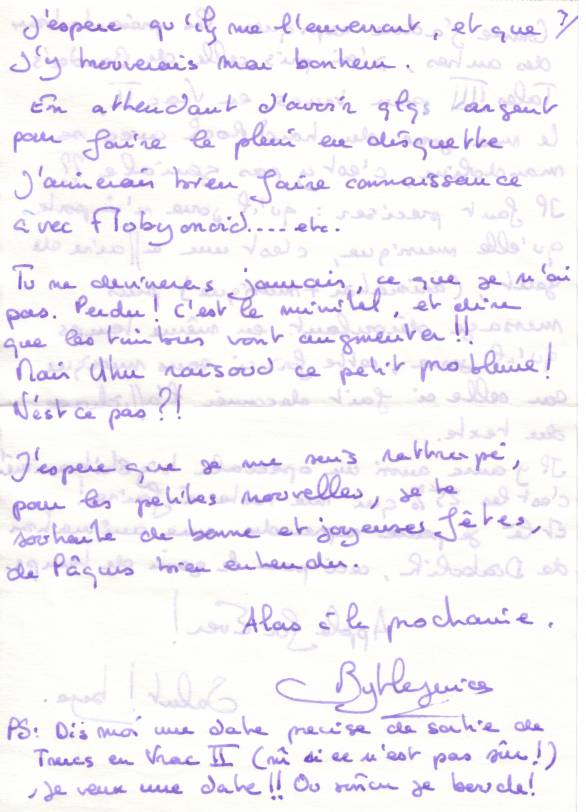 3/
J'espere qu'ils me l'enverront, et que
j'y trouverais mon bonheur.
En attendant d'avoir qlqs argent
pour faire le plein en disquette
j'aimerais bien faire connaissance
avec Mobyonoid.... etc.
Tu ne devineras jamais, ce que je n'ai
pas. Perdu! C'est le minitel, et dire
que les timbres vont augmenter!!
Mais Uhu raisoud ce petit probleme!
N'est ce pas?!
J'espere que je me suis rattrapé,
pour les petites nouvelles, je te
souhaite de bonne et joyeuses fêtes,
de Pâques bien entendu.
Alas à la prochaine.
PS: Dis moi une date precise de sortie de
Trucs en Vrac II (mi si ce n'est pas sûr!)
, je veux une date!! Ou sinon je boude!